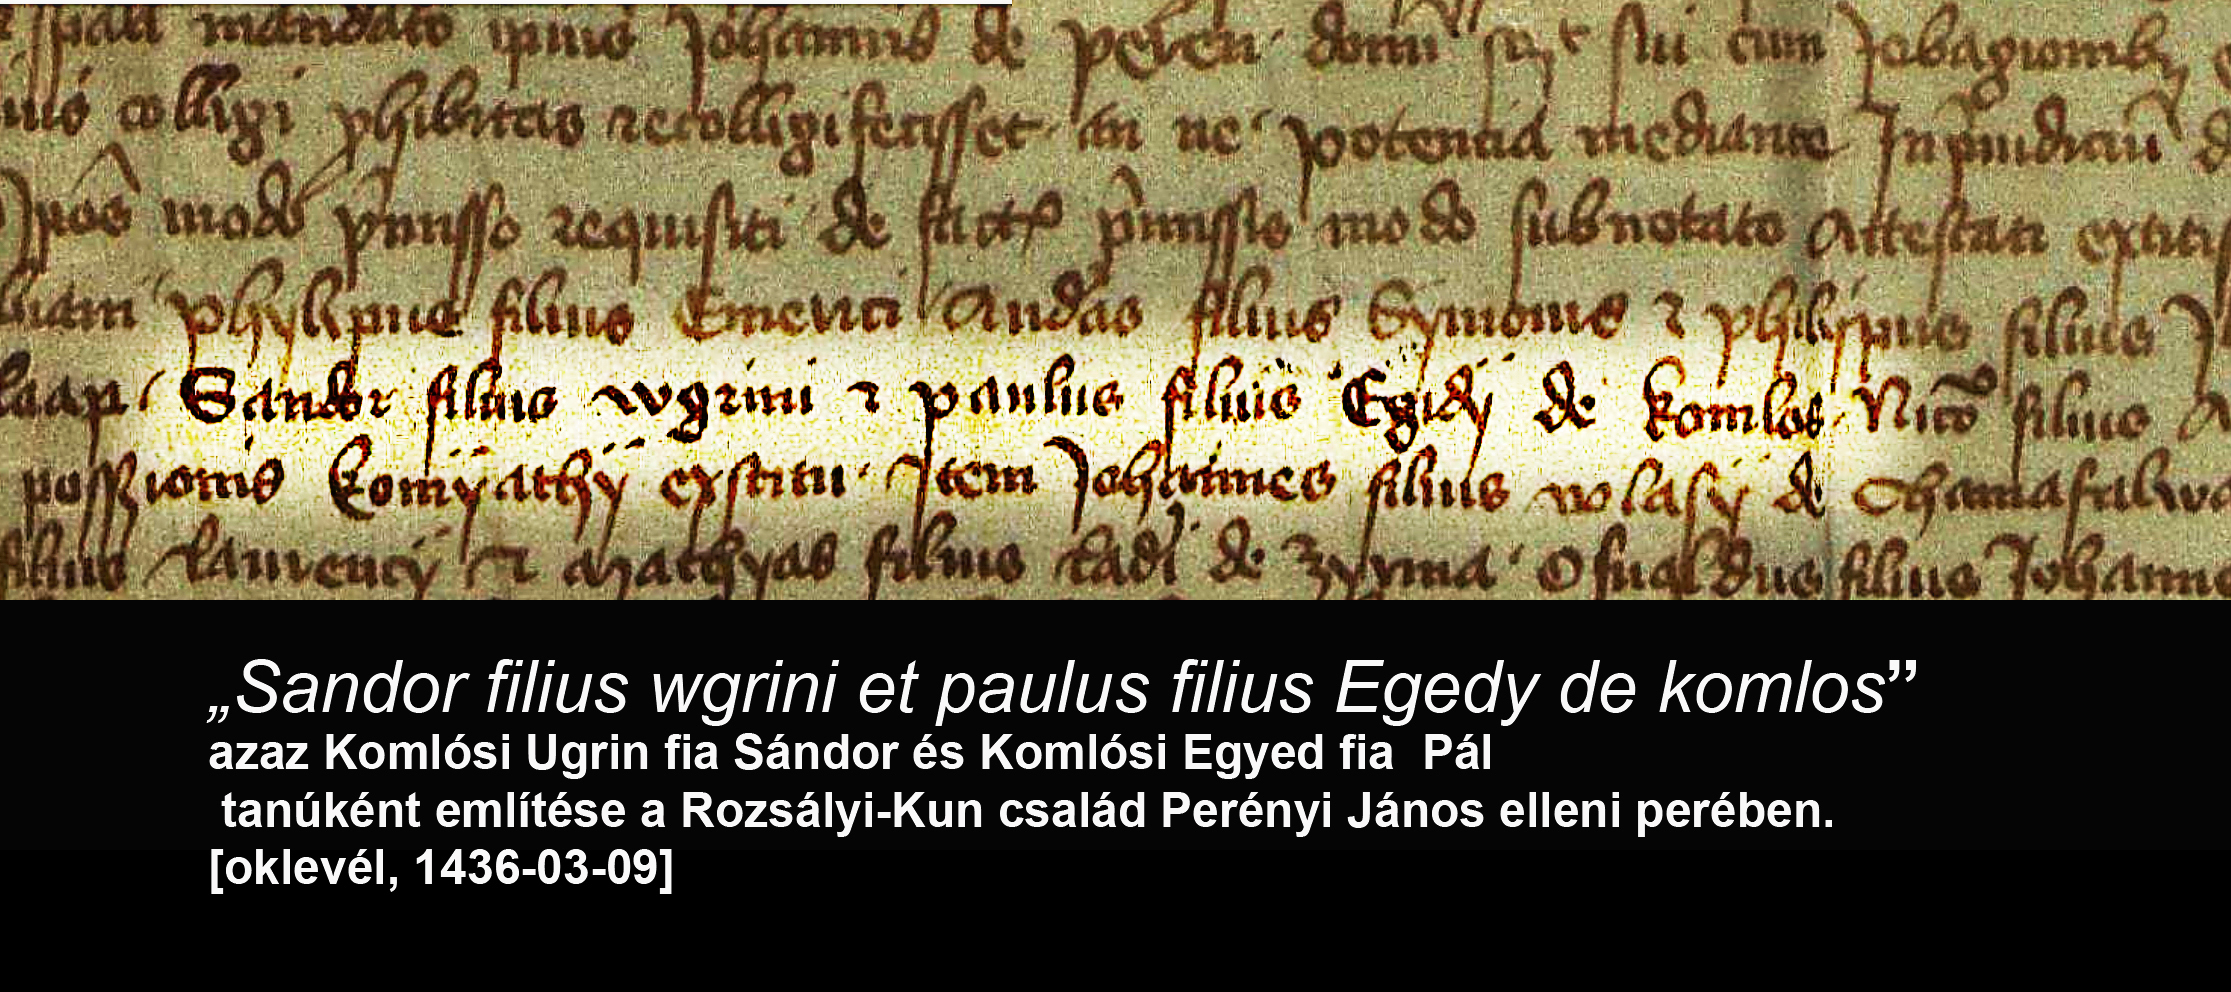 mandato ipius Johannis de peren cum Jobagionib
colligi phibitas recolligi fecisset an ne potencia mediante In
modo pmisso requisiti de pmissis modo subnotato Attestati
phylippus filius Emerici Andas filius Symonis et philippus filius
Sandor filius wgrini et paulus filius Egidy de komlos filius
possionis komyathy extitit Item Johannes filius wlasy de Chamafalwa
filius laurency et Mathyas filius de zyrma Osualdus filius Johannis
„Sandor filius wgrini et paulus filius Egedy de komlos”
azaz Komlósi Ugrin fia Sándor és Komlósi Egyed fia Pál
tanúként említése a Rozsályi-Kun család Perényi János elleni perében.
[oklevél, 1436-03-09]